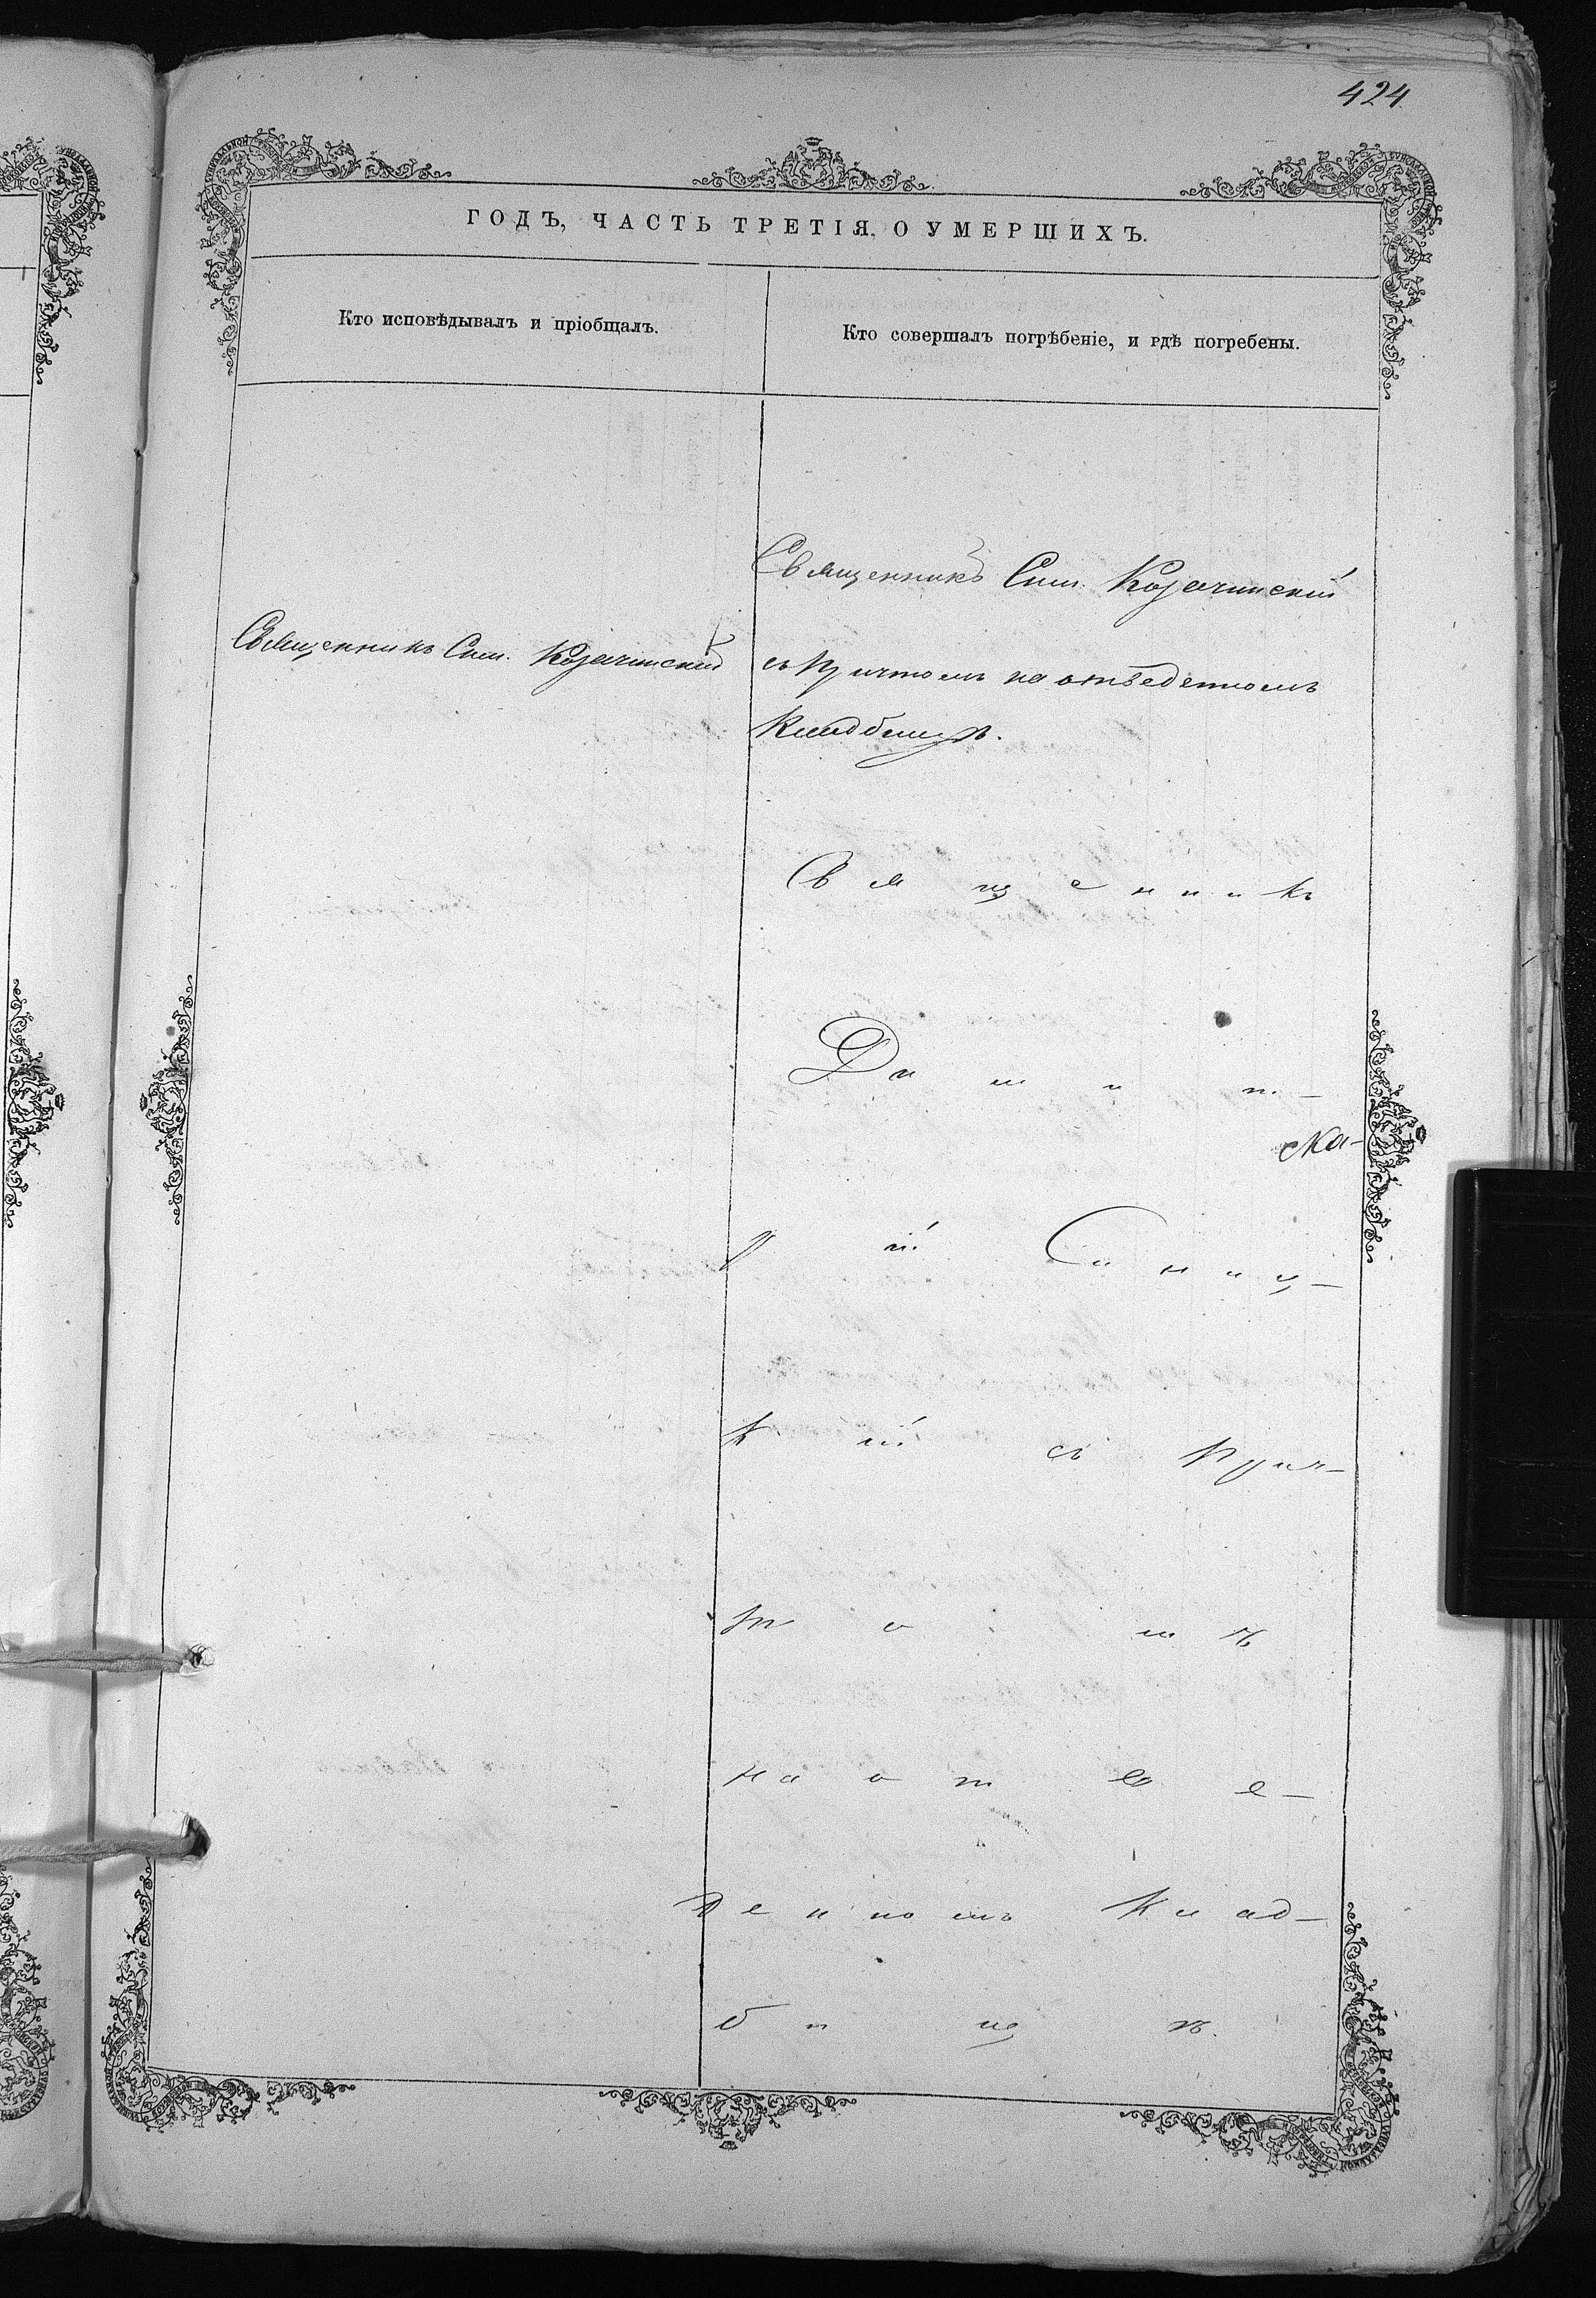 424
ГОДЪ, ЧАСТЬ ТРЕТІЯ, О УМЕРШИХЪ.
Кто исповѣдывалъ и пріобщалъ.
Кто совершалъ погрѣбеніе, и гдѣ погребены.
Священникъ Сим. Козачинскій
Священникъ Сим. Козачинскій
съ причтомъ на отведенномъ
Кладбищѣ.
Священикъ
Дими т-
рій Синиц-
кій съ Прич-
томъ
на отве-
денномъ Клад-
бищѣ.